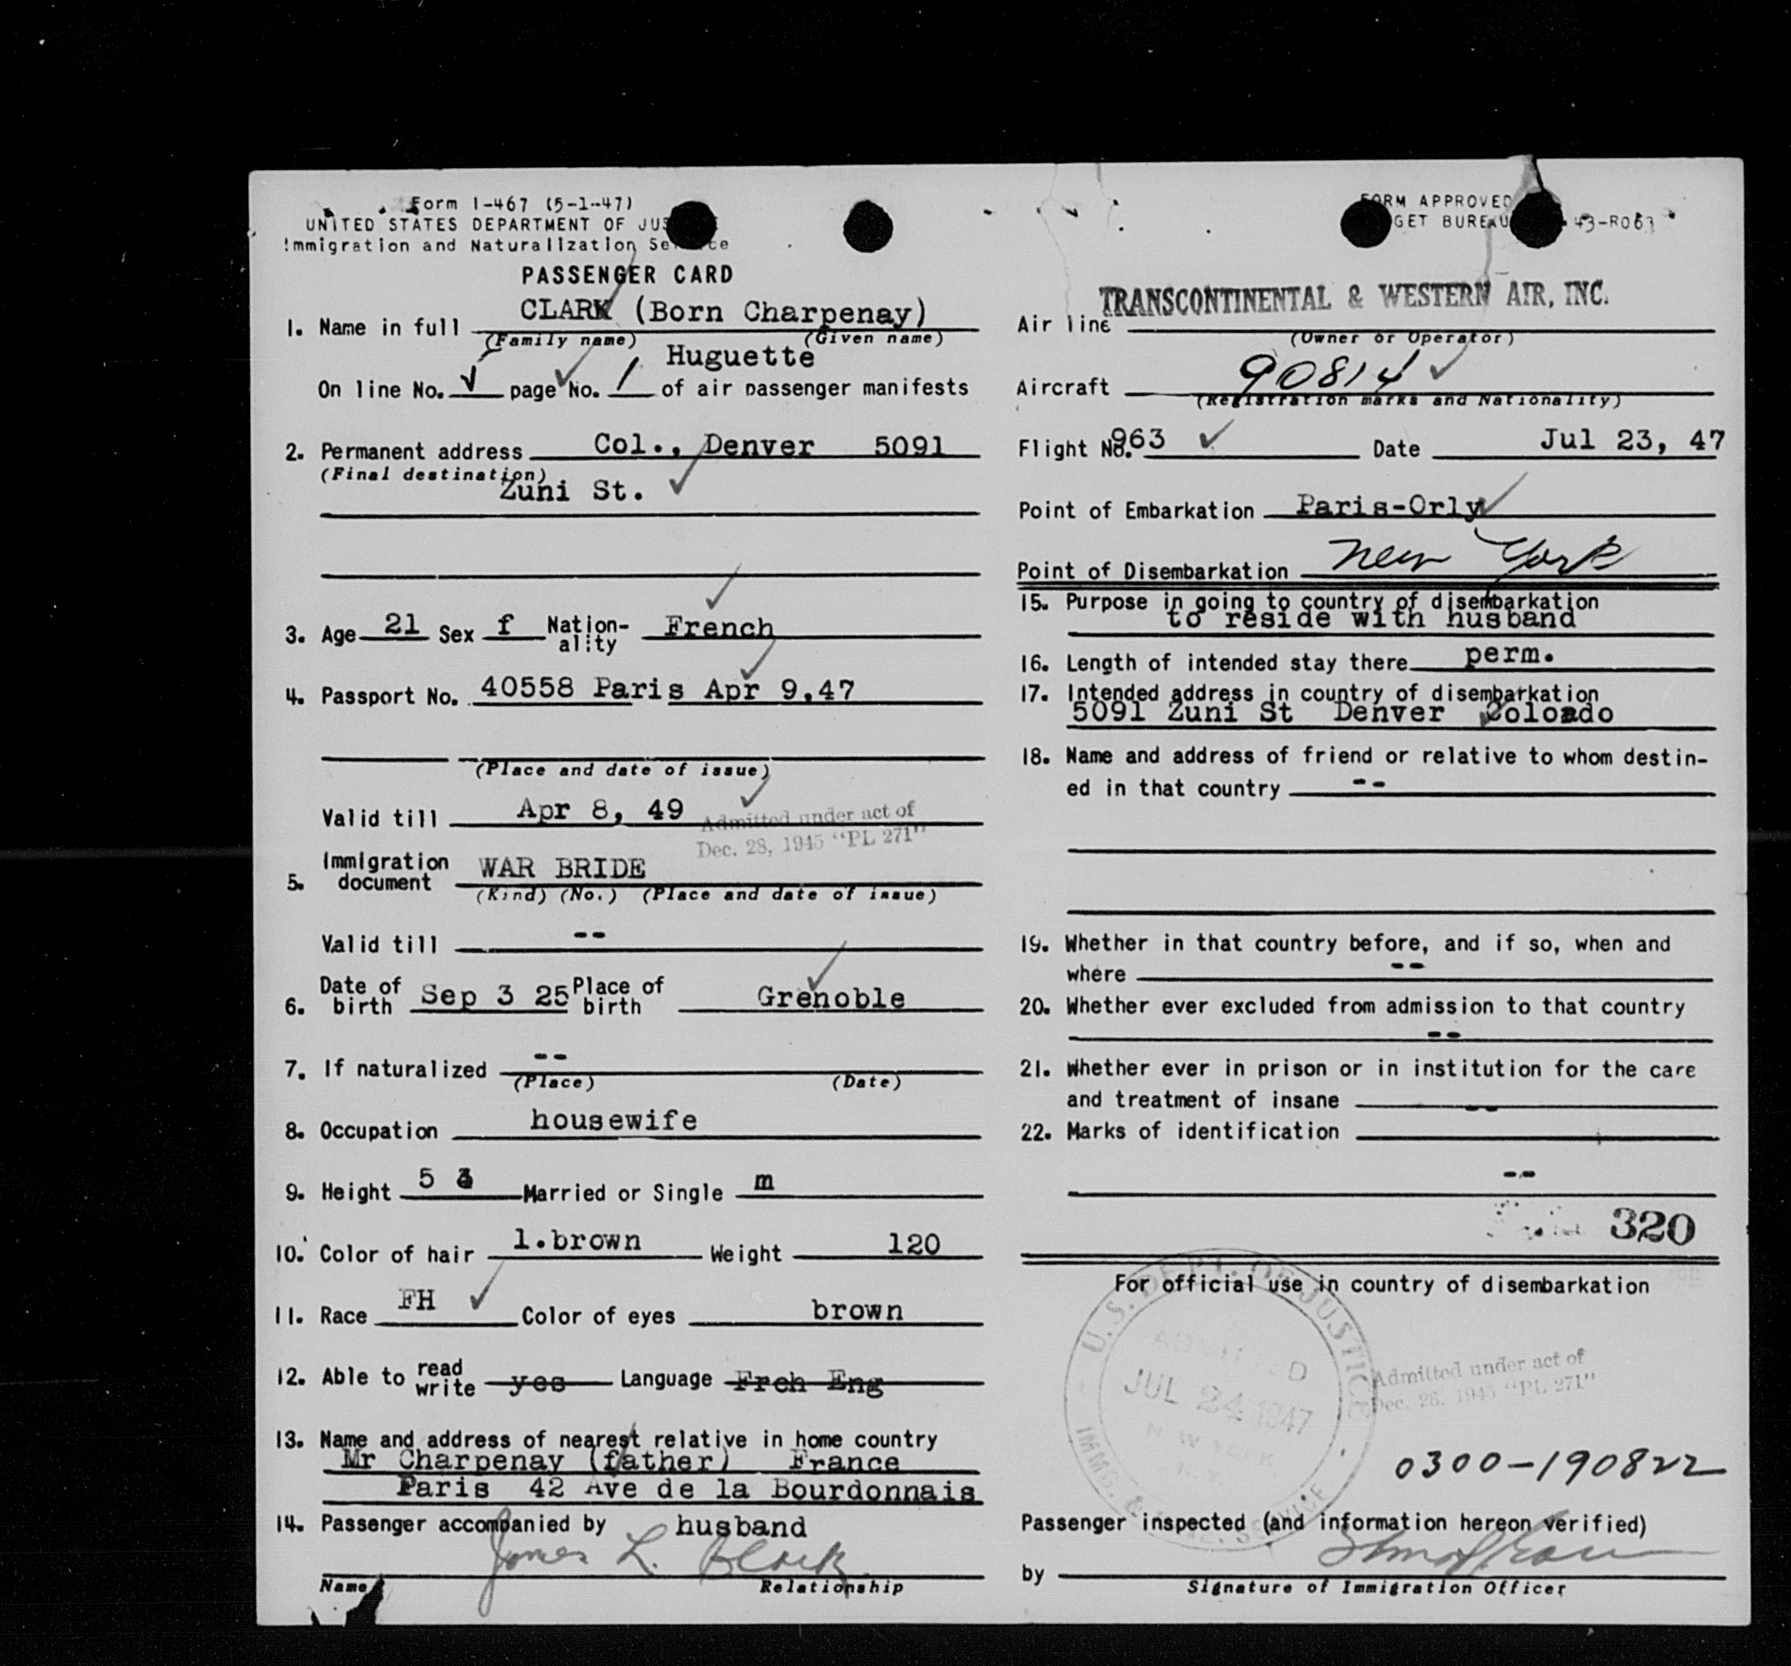 Form I-467 (5-1-47)
UNITED STATES DEPARTMENT OF
Immigration and Naturalization
PASSENGER CARD
1. Name in full CLARK (Born Charpenay)
(Family name) (Given name)
Huguette
On line No. page No. 1 of air passenger manifests
2. Permanent address Col., Denver 5091
(Final destination)
Zuni St.
3. Age 21 Sex f Nation-ality French
4. Passport No. 40558 Paris Apr 9,47
(Place and date of issue)
Valid till Apr 8, 49
Admitted under act of
Dec. 28, 1945 "PL 271"
5. Immigration document WAR BRIDE
(Kind) (No.) (Place and date of issue)
Valid till --
6. Date of birth Sep 3 25 Place of birth Grenoble
7. If naturalized --
(Place) (Date)
8. Occupation housewife
9. Height 5 Married or Single m
10. Color of hair l.brown Weight 120
11. Race FH Color of eyes brown
12. Able to read write yes Language Frch Eng
13. Name and address of nearest relative in home country
Mr Charpenay (father) France
Paris 42 Ave de la Bourdonnais
14. Passenger accompanied by husband
James L. Clark
Name Relationship
FORM APPROVED
BUREAU 43-R063
TRANSCONTINENTAL & WESTERN AIR, INC.
Air line
(Owner or Operator)
Aircraft 90814
(Registration marks and Nationality)
Flight No. 963 Date Jul 23, 47
Point of Embarkation Paris-Orly
Point of Disembarkation New York
15. Purpose in going to country of disembarkation
to reside with husband
16. Length of intended stay there perm.
17. Intended address in country of disembarkation
5091 Zuni St Denver Coloado
18. Name and address of friend or relative to whom destin-
ed in that country --
19. Whether in that country before, and if so, when and
where --
20. Whether ever excluded from admission to that country
--
21. Whether ever in prison or in institution for the care
and treatment of insane --
22. Marks of identification
--
320
For official use in country of disembarkation
U.S. DEPT. OF JUSTICE
ADMITTED
JUL 24 1947
NEW YORK
IMMG. & NAT. SERVICE
Admitted under act of
Dec. 28, 1945 "PL 271"
0300-190822
Passenger inspected (and information hereon verified)
by
Signature of Immigration Officer